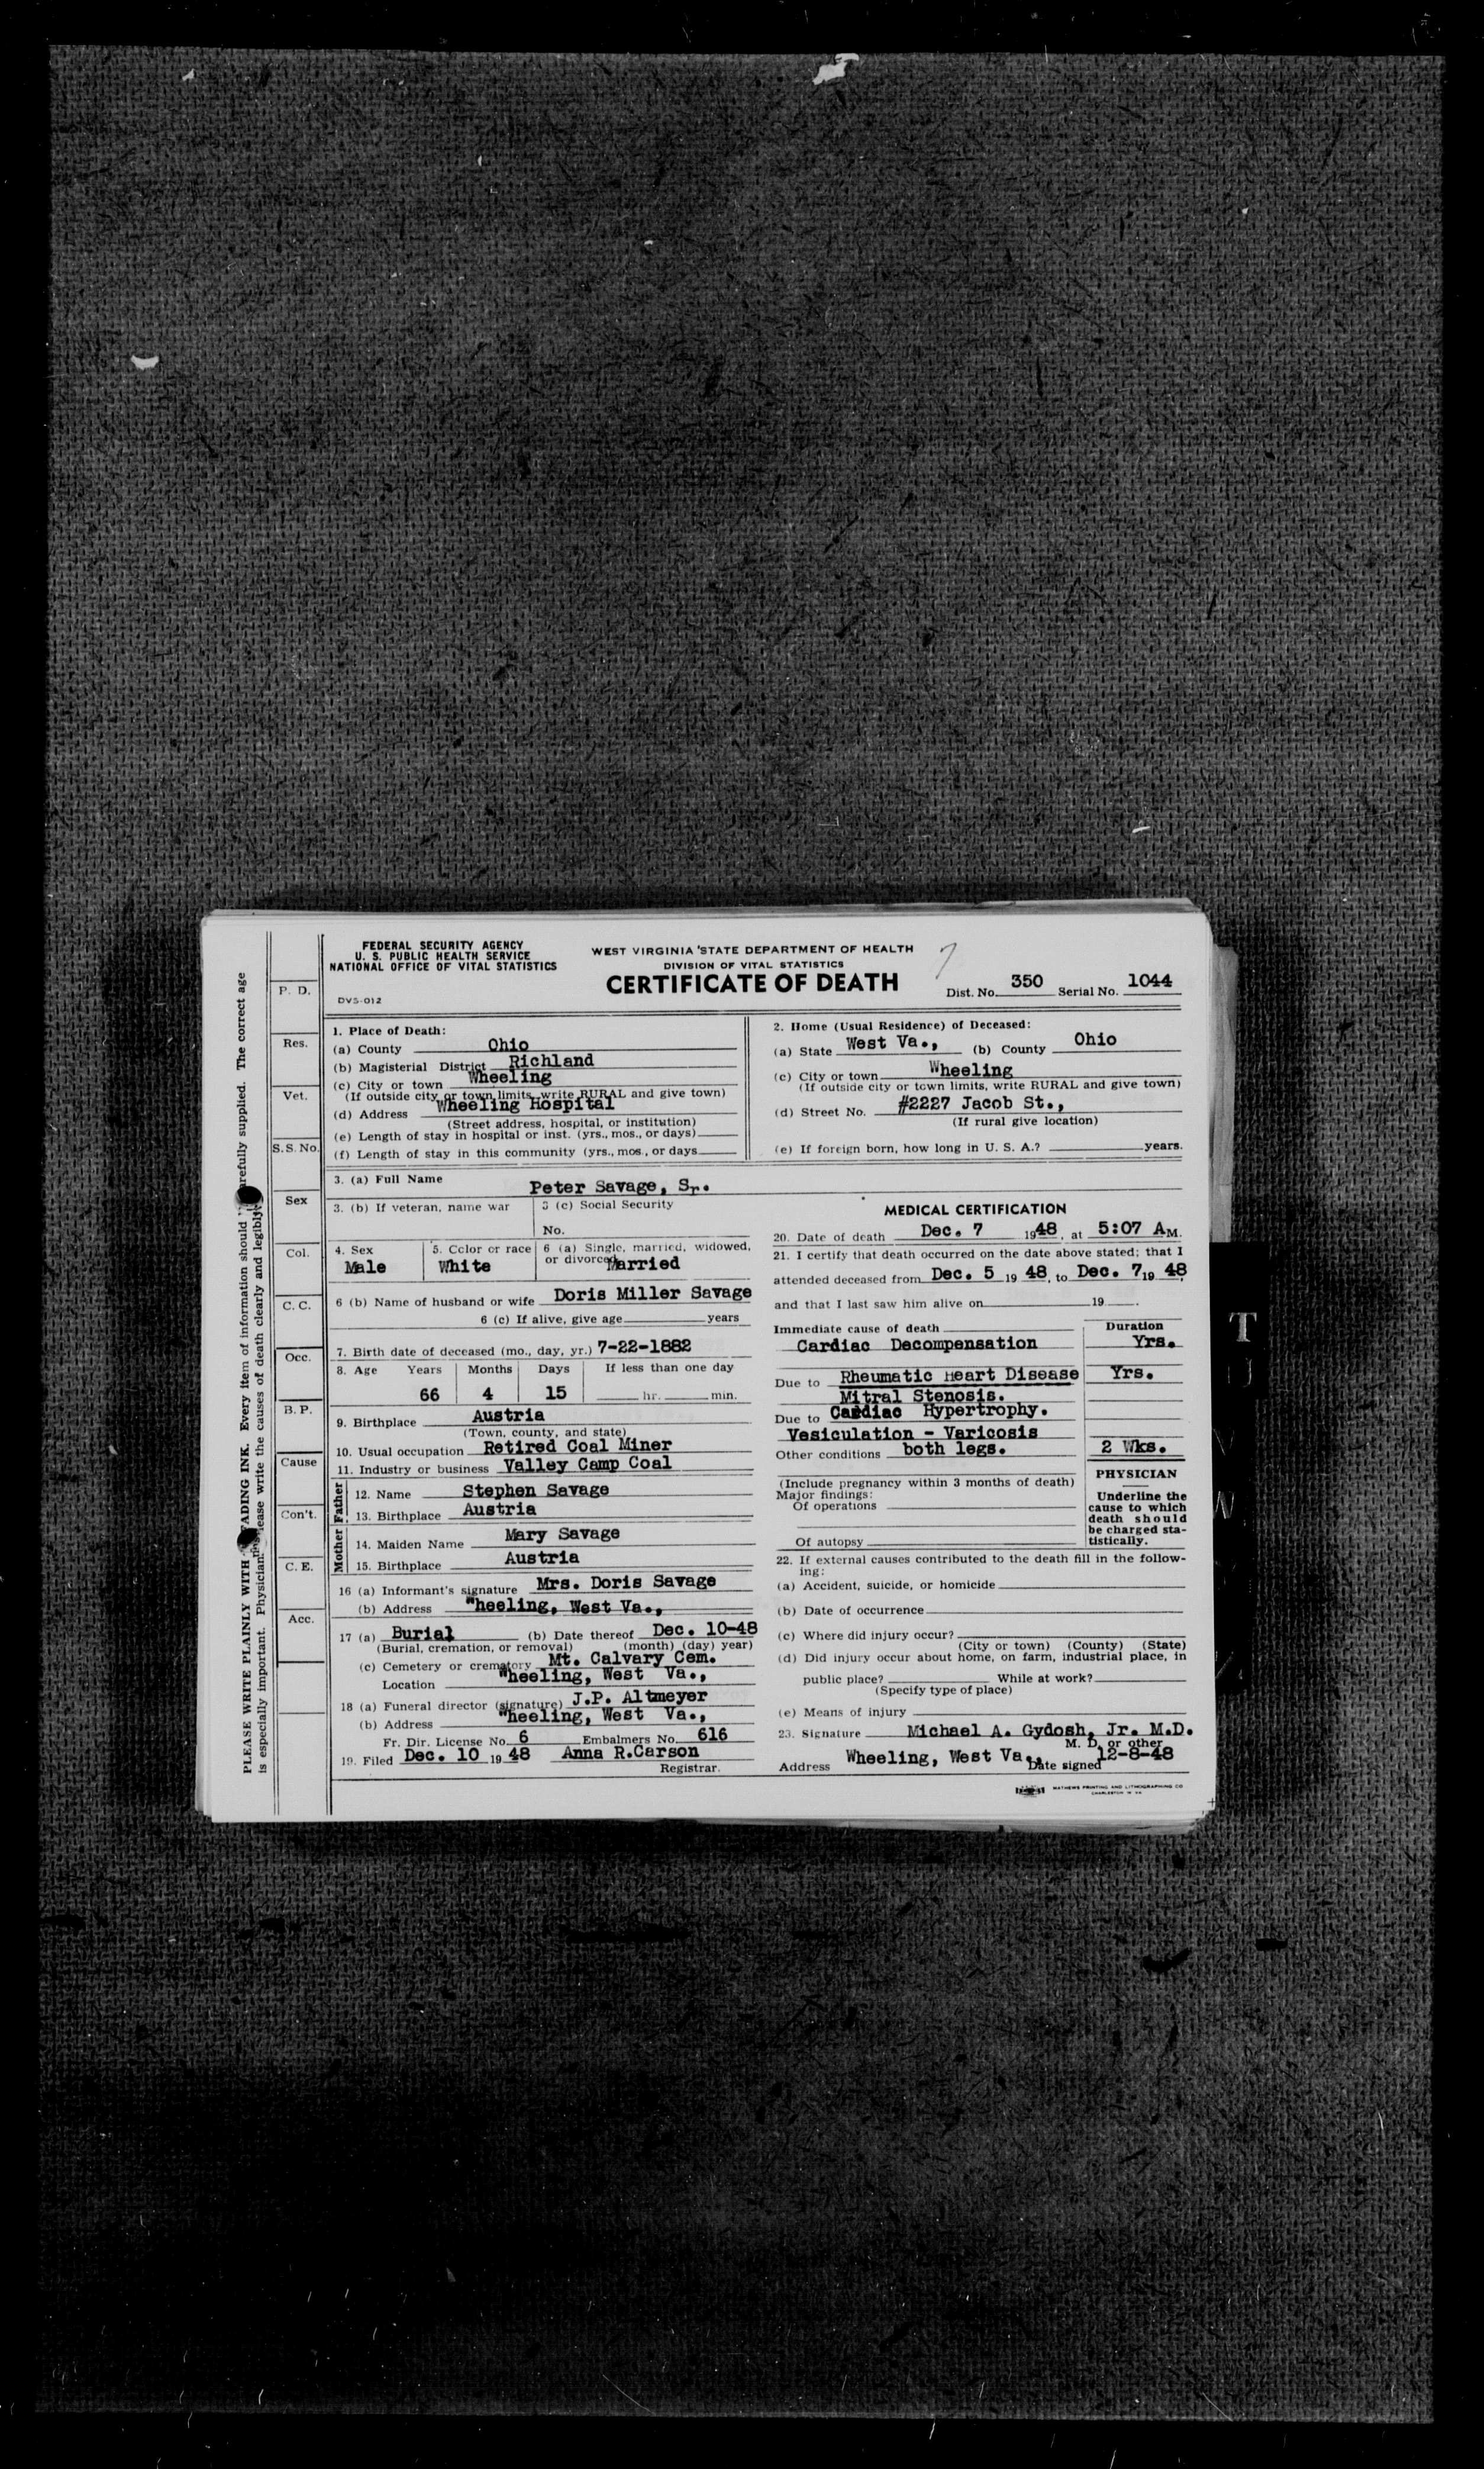 FEDERAL SECURITY AGENCY
U. S. PUBLIC HEALTH SERVICE
NATIONAL OFFICE OF VITAL STATISTICS
DVS-012
WEST VIRGINIA STATE DEPARTMENT OF HEALTH
DIVISION OF VITAL STATISTICS
CERTIFICATE OF DEATH
7
Dist. No. 350 Serial No. 1044
PLEASE WRITE PLAINLY WITH FADING INK. Every item of information should arefully supplied. The correct age
is especially important. Physician: lease write the causes of death clearly and legibly.
P. D.
Res.
Vet.
S.S. No.
Sex
Col.
C. C.
Occ.
B. P.
Cause
Con't.
C. E.
Acc.
1. Place of Death:
(a) County Ohio
(b) Magisterial District Richland
(c) City or town Wheeling
(If outside city or town limits, write RURAL and give town)
(d) Address Wheeling Hospital
(Street address, hospital, or institution)
(e) Length of stay in hospital or inst. (yrs., mos., or days)
(f) Length of stay in this community (yrs., mos., or days
2. Home (Usual Residence) of Deceased:
(a) State West Va., (b) County Ohio
(c) City or town Wheeling
(If outside city or town limits, write RURAL and give town)
(d) Street No. #2227 Jacob St.,
(If rural give location)
(e) If foreign born, how long in U. S. A.? years.
3. (a) Full Name Peter Savage, Sr.
3. (b) If veteran, name war
3 (c) Social Security
No.
4. Sex
Male
5. Color or race
White
6 (a) Single, married, widowed,
or divorced Married
6 (b) Name of husband or wife Doris Miller Savage
6 (c) If alive, give age years
7. Birth date of deceased (mo., day, yr.) 7-22-1882
8. Age Years Months Days If less than one day
66 4 15 hr. min.
9. Birthplace Austria
(Town, county, and state)
10. Usual occupation Retired Coal Miner
11. Industry or business Valley Camp Coal
Father
12. Name Stephen Savage
13. Birthplace Austria
Mother
14. Maiden Name Mary Savage
15. Birthplace Austria
16 (a) Informant's signature Mrs. Doris Savage
(b) Address Wheeling, West Va.,
17 (a) Burial (b) Date thereof Dec. 10-48
(Burial, cremation, or removal) (month) (day) year)
(c) Cemetery or crematory Mt. Calvary Cem.
Location Wheeling, West Va.,
18 (a) Funeral director (signature) J.P. Altmeyer
(b) Address Wheeling, West Va.,
Fr. Dir. License No. 6 Embalmers No. 616
19. Filed Dec. 10 19 48 Anna R.Carson
Registrar.
MEDICAL CERTIFICATION
20. Date of death Dec. 7 1948, at 5:07 AM.
21. I certify that death occurred on the date above stated; that I
attended deceased from Dec. 5 19 48, to Dec. 7, 19 48
and that I last saw him alive on 19 .
Immediate cause of death Duration
Cardiac Decompensation Yrs.
Due to Rheumatic Heart Disease Yrs.
Mitral Stenosis.
Due to Cardiac Hypertrophy.
Vesiculation - Varicosis
Other conditions both legs. 2 Wks.
(Include pregnancy within 3 months of death)
Major findings:
Of operations
Of autopsy
PHYSICIAN
Underline the
cause to which
death should
be charged sta-
tistically.
22. If external causes contributed to the death fill in the follow-
ing:
(a) Accident, suicide, or homicide
(b) Date of occurrence
(c) Where did injury occur?
(City or town) (County) (State)
(d) Did injury occur about home, on farm, industrial place, in
public place? While at work?
(Specify type of place)
(e) Means of injury
23. Signature Michael A. Gydosh, Jr. M.D.
M. D. or other
Address Wheeling, West Va., Date signed 12-8-48
MATHEWS PRINTING AND LITHOGRAPHING CO
CHARLESTON W VA
T